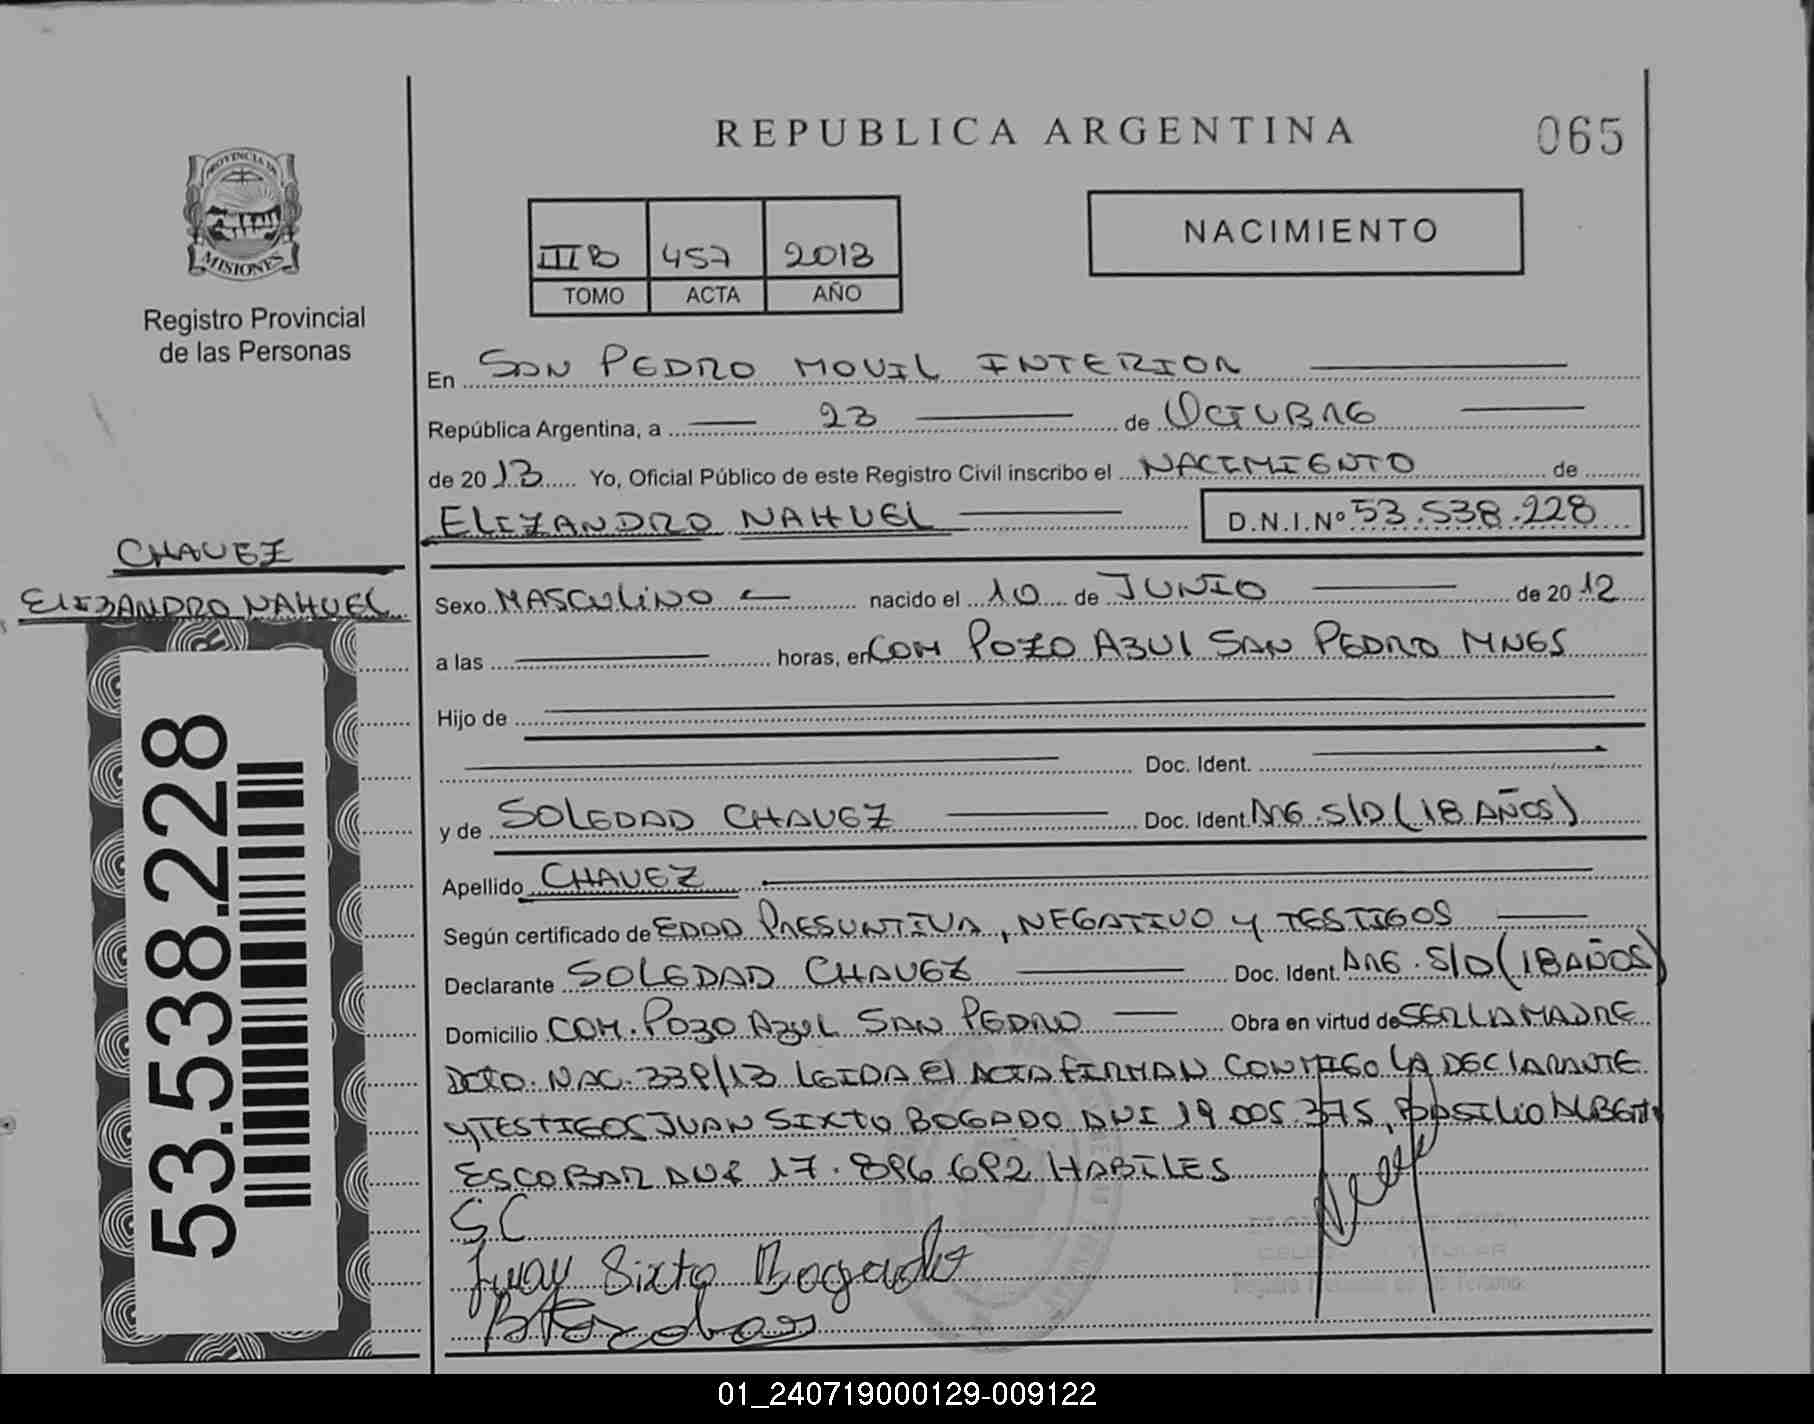 REPUBLICA ARGENTINA
065
PROVINCIA DE
MISIONES
Registro Provincial
de las Personas
IIIB 457 2013
TOMO ACTA AÑO
NACIMIENTO
En SAN PEDRO MOVIL INTERIOR
República Argentina, a 23 de OCTUBRE
de 2013 Yo, Oficial Público de este Registro Civil inscribo el NACIMIENTO de
ELIZANDRO NAHUEL D.N.I.Nº 53.538.228
CHAVEZ
ELIZANDRO NAHUEL
53.538.228
Sexo MASCULINO nacido el 10 de JUNIO de 2012
a las horas, en COM POZO AZUL SAN PEDRO MNES
Hijo de
Doc. Ident.
y de SOLEDAD CHAVEZ Doc. Ident. ARG. S/D (18 AÑOS)
Apellido CHAVEZ
Según certificado de EDAD PRESUNTIVA, NEGATIVO Y TESTIGOS
Declarante SOLEDAD CHAVEZ Doc. Ident. ARG. S/D (18 AÑOS)
Domicilio COM. POZO AZUL SAN PEDRO Obra en virtud de SER LA MADRE
DCTO. NAC. 339/13 LEIDA El ACTA FIRMAN CONMIGO LA DECLARANTE
Y TESTIGOS JUAN SIXTO BOGADO DNI 19.005.375, BASILIO ALBERTO
ESCOBAR DNI 17.896.692 HABILES
SC
Juan Sixto Bogado
B Escobar
01_240719000129-009122